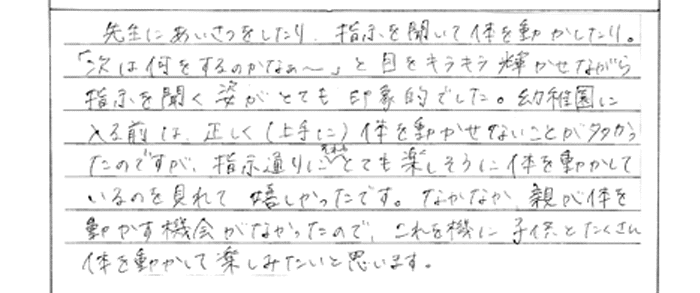 先生にあいさつをしたり、指示を聞いて体を動かしたり。
「次は何をするのかなぁ〜」と目をキラキラ輝かせながら
指示を聞く姿がとても印象的でした。幼稚園に
入る前は、正しく(上手に)体を動かせないことが多かっ
たのですが、指示通りに とても楽しそうに体を動かして
いるのを見れて嬉しかったです。なかなか、親が体を
動かす機会がなかったので、これを機に子供とたくさん
体を動かして楽しみたいと思います。